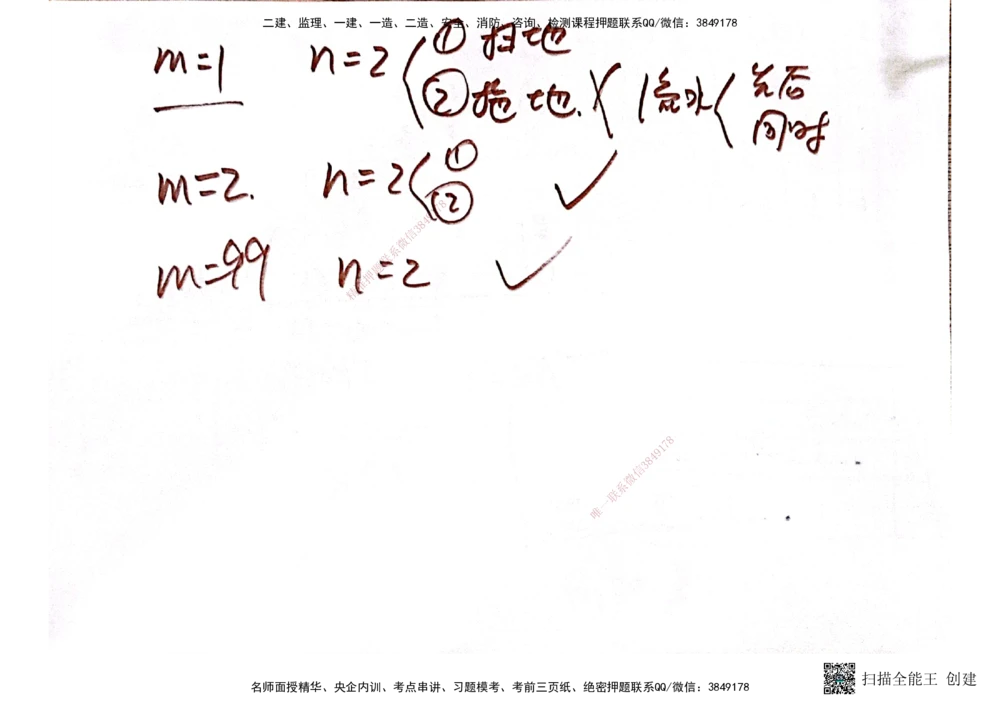 二建、监理、一建、一造、二造、安全、消防、咨询、检测课程押题联系QQ/微信：3849178
m=1 n=2 ① 扫地
② 拖地. 1 先后
同时
m=2. n=2 ①
② ✓
m=99 n=2 ✓
押题联系微信3849178
唯一联系微信3849178
扫描全能王 创建
名师面授精华、央企内训、考点串讲、习题模考、考前三页纸、绝密押题联系QQ/微信：3849178